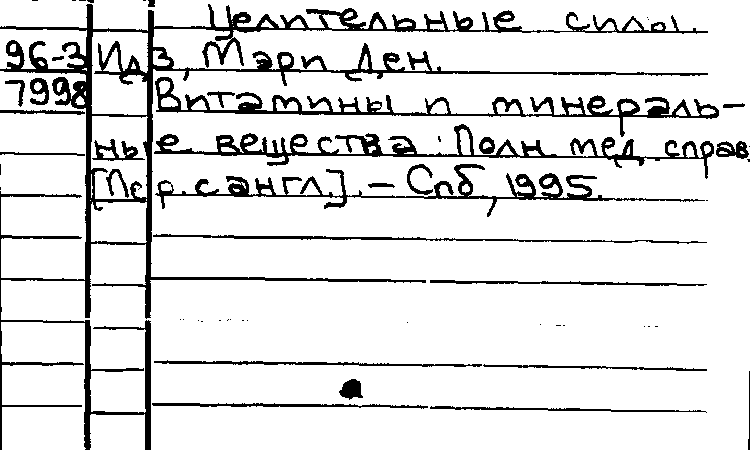 Целительные силы.
96-3 Идз, Мэри Ден.
7998 Витамины и минераль-
ные вещества : Полн мед справ
[Пер. с англ.]. - Спб, 1995.